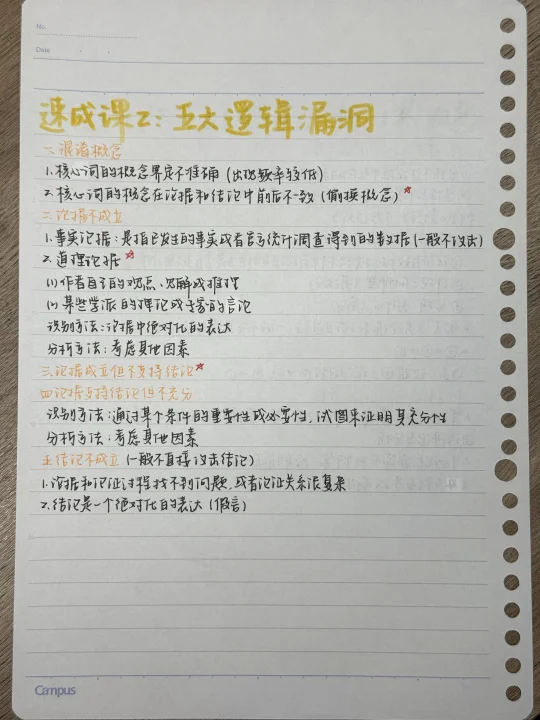 No.
Date
速成课2：五大逻辑漏洞
一.混淆概念
1.核心词的概念界定不准确（出现频率较低）
2.核心词的概念在论据和结论中前后不一致（偷换概念）
二.论据不成立
1.事实论据：是指已发生的事实或者官方统计调查得到的数据（一般不攻击）
2.道理论据
(1)作者自己的观点、见解或推理
(2)某些学派的理论或专家的言论
识别方法：论据中绝对化的表达
分析方法：考虑其他因素
三.论据成立但不支持结论
四.论据支持结论但不充分
识别方法：通过某个条件的重要性或必要性，试图来证明其充分性
分析方法：考虑其他因素
五.结论不成立（一般不直接攻击结论）
1.论据和论证过程找不到问题，或者论证关系很复杂
2.结论是一个绝对化的表达（假言）
Campus